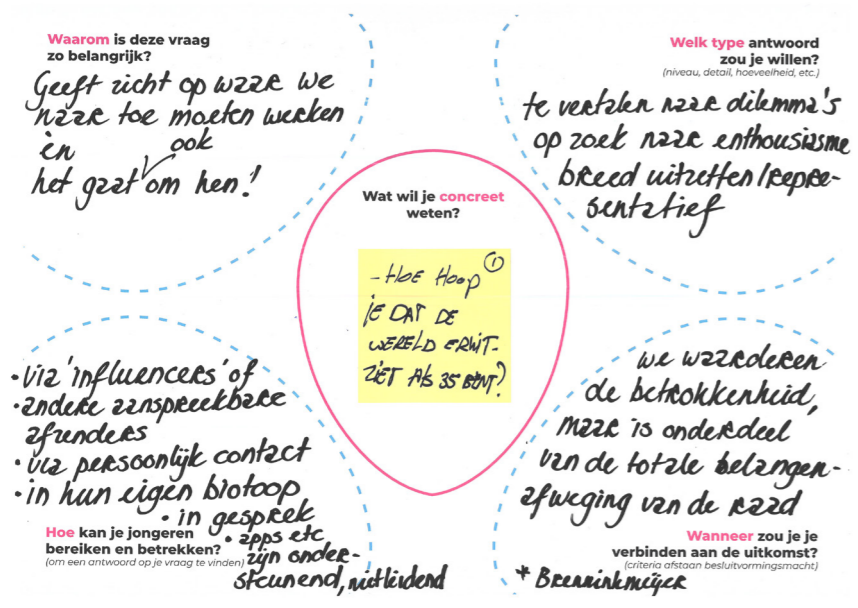 Waarom is deze vraag
zo belangrijk?
Geeft zicht op waar we
naar toe moeten werken
èn ook
het gaat om hen!
Welk type antwoord
zou je willen?
(niveau, detail, hoeveelheid, etc.)
te vertalen naar dilemma's
op zoek naar enthousiasme
breed uitzetten/repre-
sentatief
Wat wil je concreet
weten?
- HOE HOOP ①
JE DAT DE
WERELD ERUIT-
ZIET ALS 35 BENT?
• via 'influencers' of
• andere aanspreekbare
afzenders
• via persoonlijk contact
• in hun eigen biotoop
• in gesprek
• apps etc
zijn onder-
steunend, niet leidend
Hoe kan je jongeren
bereiken en betrekken?
(om een antwoord op je vraag te vinden)
we waarderen
de betrokkenheid,
maar is onderdeel
van de totale belangen-
afweging van de raad
Wanneer zou je je
verbinden aan de uitkomst?
(criteria afstaan besluitvormingsmacht)
* Brenninkmeijer